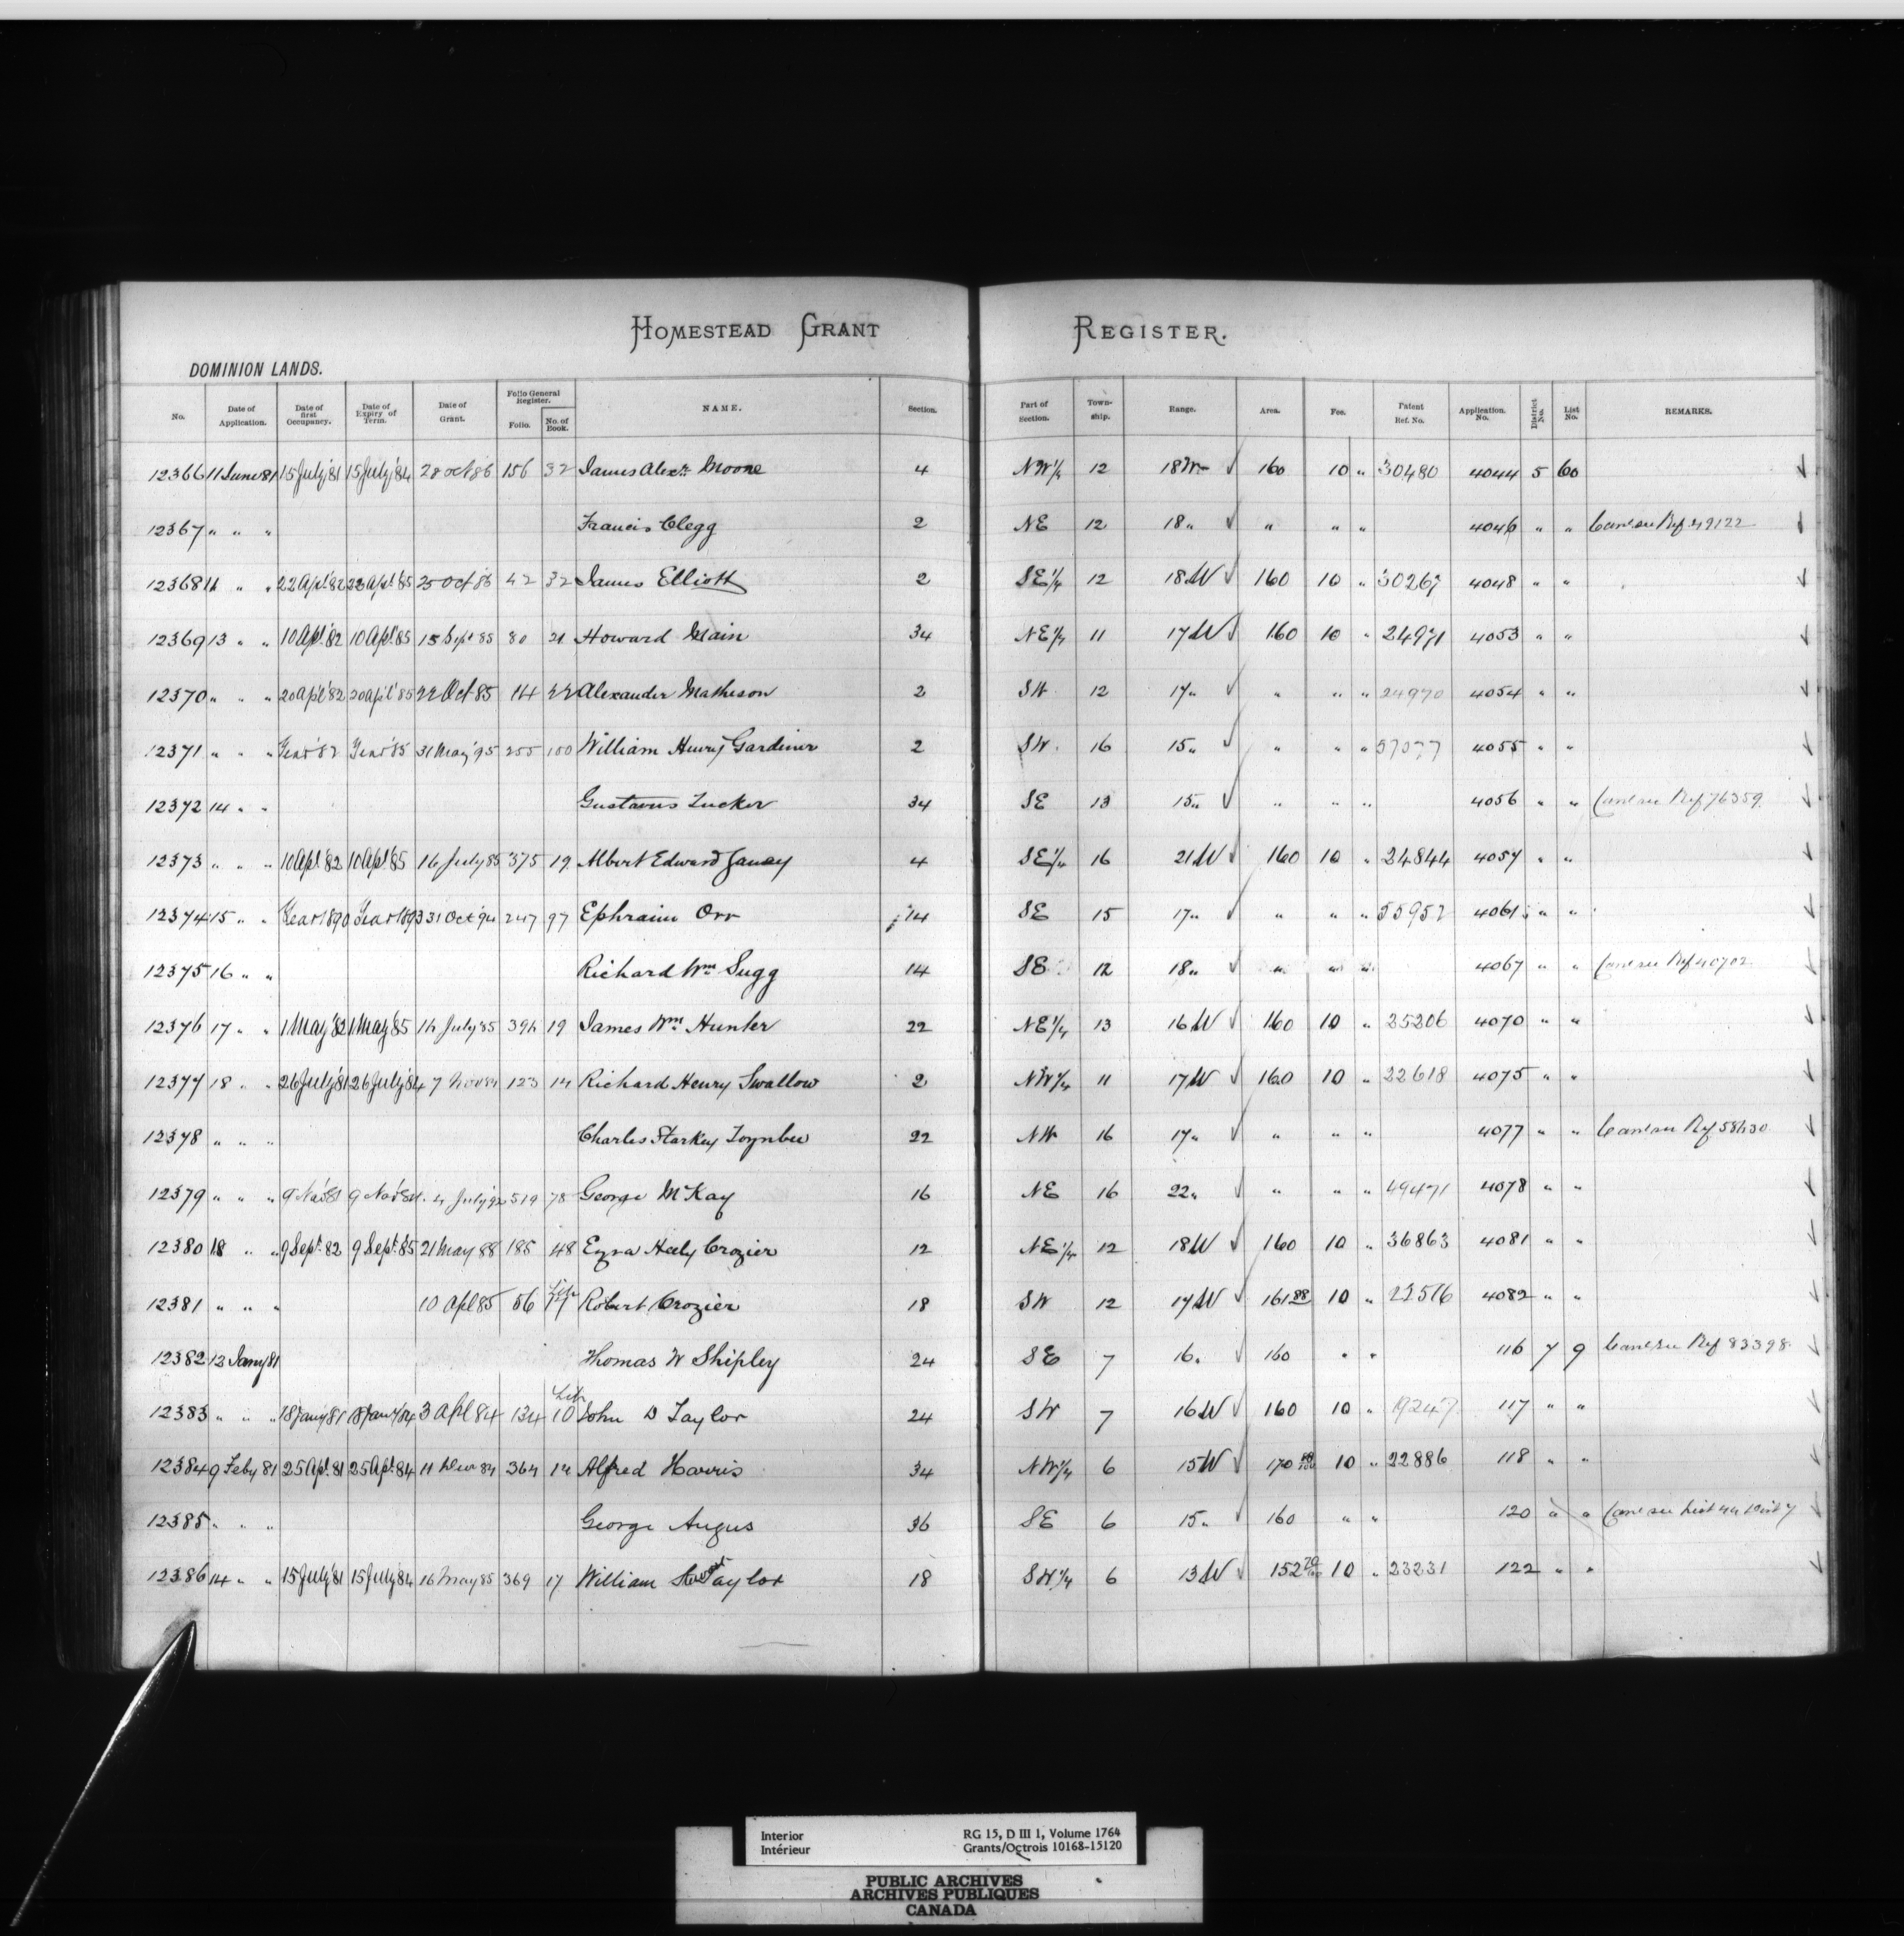 HOMESTEAD GRANT REGISTER.
DOMINION LANDS.
No. Date of Application. Date of first Occupancy. Date of Expiry of Term. Date of Grant. Folio General Register. Folio. No. of Book. NAME. Section. Part of Section. Town-ship. Range. Area. Fee. Patent Ref. No. Application No. District No. List No. REMARKS.
12366 11 June 81 15 July '81 15 July '84 28 Oct 86 156 32 James Alexr. Moore 4 NW 1/4 12 18 W ✓ 160 10 " 30480 4044 5 60
12367 " " " Francis Clegg 2 NE 12 18 " ✓ " " " 4046 " " Canc see Ref 49122
12368 11 " " 22 Apl. '82 22 Apl. '85 25 Oct 86 42 32 James Elliott 2 SE 1/4 12 18 W ✓ 160 10 " 30267 4048 " "
12369 13 " " 10 Apl. '82 10 Apl. '85 15 Sept 85 80 21 Howard Main 34 NE 1/4 11 17 W ✓ 160 10 " 24971 4053 " "
12370 " " " 20 Apil '82 20 Apil '85 22 Oct 85 14 22 Alexander Matheson 2 SW 12 17 " ✓ " " " 24970 4054 " "
12371 " " " Year '82 Year '85 31 May '95 255 100 William Henry Gardiner 2 SW. 16 15 " ✓ " " " 57077 4055 " "
12372 14 " " Gustavus Tucker 34 SE 13 15 " ✓ " " " 4056 " " Canc see Ref 76359
12373 " " " 10 Apl. '82 10 Apl. '85 16 July 85 375 19 Albert Edward 4 SE 1/4 16 21 W ✓ 160 10 " 24844 4057 " "
12374 15 " " Year 1890 Year 1893 31 Oct '94 247 97 Ephraim Orr 14 SE 15 17 " ✓ " " " 55952 4061 " "
12375 16 " " Richard Wm. Sugg 14 SE 12 18 " ✓ " " " 4067 " " Canc see Ref 40702
12376 17 " " 1 May '82 1 May '85 14 July '85 394 19 James Wm. Hunter 22 NE 1/4 13 16 W ✓ 160 10 " 25206 4070 " "
12377 18 " " 26 July '81 26 July '84 7 Nov 84 123 14 Richard Henry Swallow 2 NW 1/4 11 17 W ✓ 160 10 " 22618 4075 " "
12378 " " " Charles Starkey Toynbee 22 NW 16 17 " ✓ " " " 4077 " " Canc see Ref 58430
12379 " " " 9 Nov '81 9 Nov '84 4 July '92 519 78 George McKay 16 NE 16 22 " ✓ " " " 49471 4078 " "
12380 18 " " 9 Sept. 82 9 Sept. 85 21 May 88 185 48 Ezra Heely Crozier 12 NE 1/4 12 18 W ✓ 160 10 " 36863 4081 " "
12381 " " " 10 Apl 85 56 Lib 17 Robert Crozier 18 SW 12 17 W ✓ 161 88 10 " 22516 4082 " "
12382 12 Jany 81 Thomas W Shipley 24 SE 7 16 " ✓ 160 " " 116 7 9 Canc see Ref 83398
12383 " " " 18 Jany '81 18 Jany '84 3 Apl 84 134 Lib 10 John D Taylor 24 SW 7 16 W ✓ 160 10 " 19247 117 " "
12384 9 Feby 81 25 Apl. 81 25 Apl. 84 11 Decr 84 364 14 Alfred Harris 34 NW 1/4 6 15 W ✓ 170 10 " 22886 118 " "
12385 " " " George Angus 36 SE 6 15 " ✓ 160 " " 120 " " Canc see List 44 Dist 7
12386 14 " " 15 July '81 15 July '84 16 May 85 369 17 William Taylor 18 SW 1/4 6 13 W ✓ 152 70/100 10 " 23231 122 " "
Interior RG 15, D III 1, Volume 1764
Intérieur Grants/Octrois 10168-15120
PUBLIC ARCHIVES
ARCHIVES PUBLIQUES
CANADA